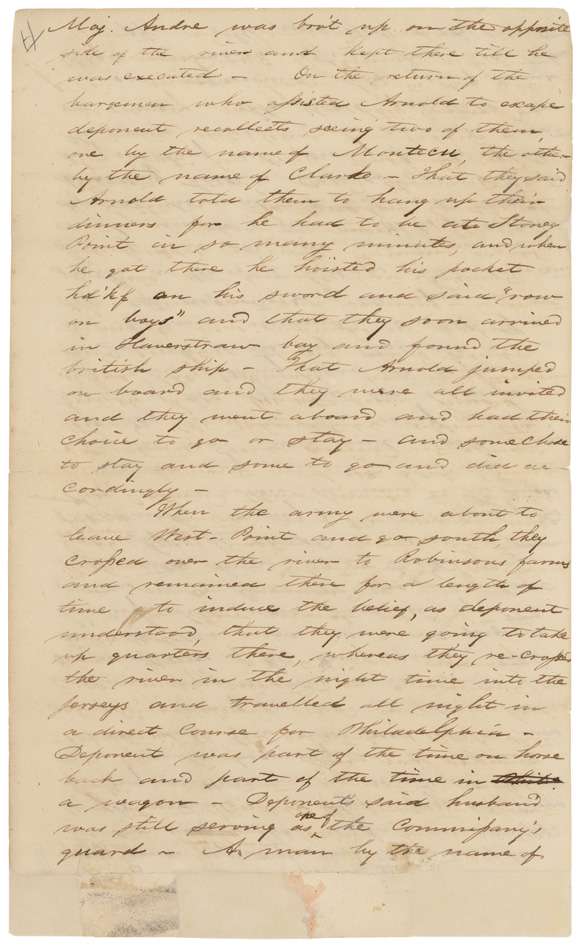 Maj. Andre was bro't up on the opposite
side of the river and kept there till he
was executed - On the return of the
bargemen who assisted Arnold to escape
deponent recollects seeing two of them,
one by the name of Montecu, the other
by the name of Clarke - That they said
Arnold told them to hang up their
dinners for he had to be at Stoney
Point in so many minutes, and when
he got there he hoisted his pocket
hd'kf on his sword and said "row
on boys" and that they soon arrived
in Haverstraw bay and found the
british ship - That Arnold jumped
on board and they were all invited
and they went aboard and had their
choice to go or stay - and some chose
to stay and some to go and did ac
cordingly -
When the army were about to
leave West-Point and go south, they
crossed over the river to Robinsons farms
and remained there for a length of
time to induce the belief, as deponent
understood, that they were going to take
up quarters there, whereas they re-crossed
the river in the night time into the
Jerseys and travelled all night in
a direct course for Philadelphia -
Deponent was part of the time on horse
back and part of the time in
a wagon - Deponent's said husband
was still serving as one of the Commissary's
guard - A man by the name of